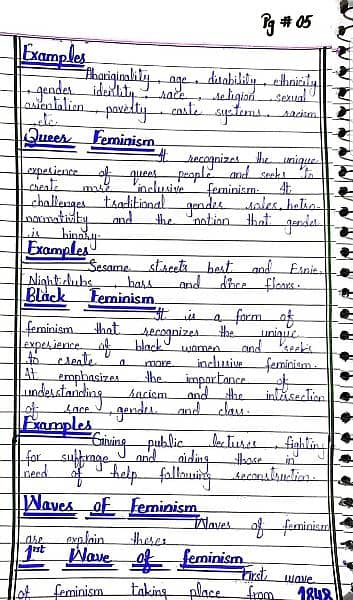 Pg # 05
Examples
Aboriginality, age, disability, ethnicity
, gender identity, race, religion, sexual
orientation, poverty, caste systems, racism
, etc.
Queer Feminism
It recognizes the unique
experience of queer people and seeks to
create more inclusive feminism. It
challenges traditional gender roles, hetro-
normativity and the notion that gender
is binary.
Examples
Sesame streets best and Ernie.
Nightclubs, bars and dince floors.
Black Feminism
It is a form of
feminism that recognizes the unique
experience of black women and seeks
to create a more inclusive feminism.
It emphasizes the importance of
understanding racism and the intesection
of race, gender and class.
Examples
Giving public lectures, fighting
for suffrage and aiding those in
need of help following reconstruction.
Waves of Feminism
Waves of feminism
are explain these:
1st Wave of feminism
First wave
of feminism taking place from 1848